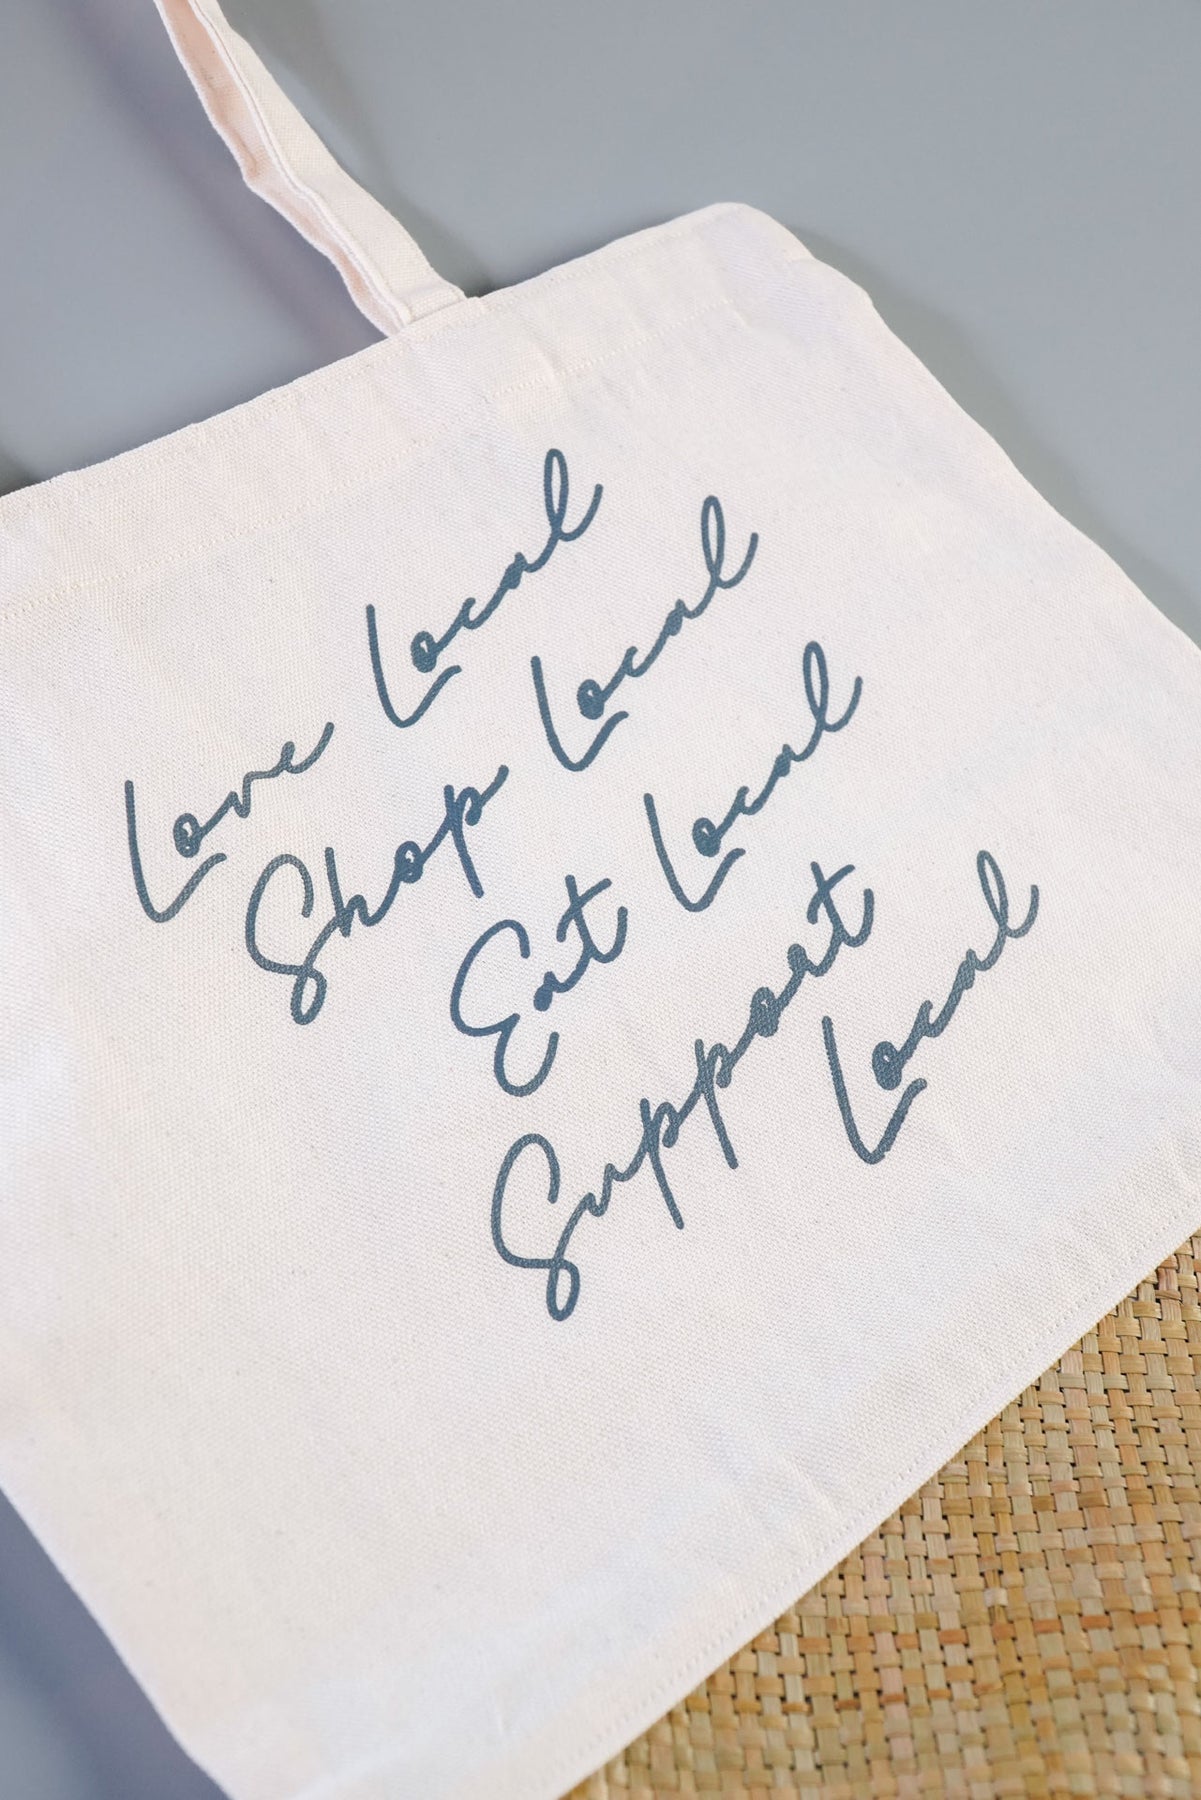 Love Local
Shop Local
Eat Local
Support
Local